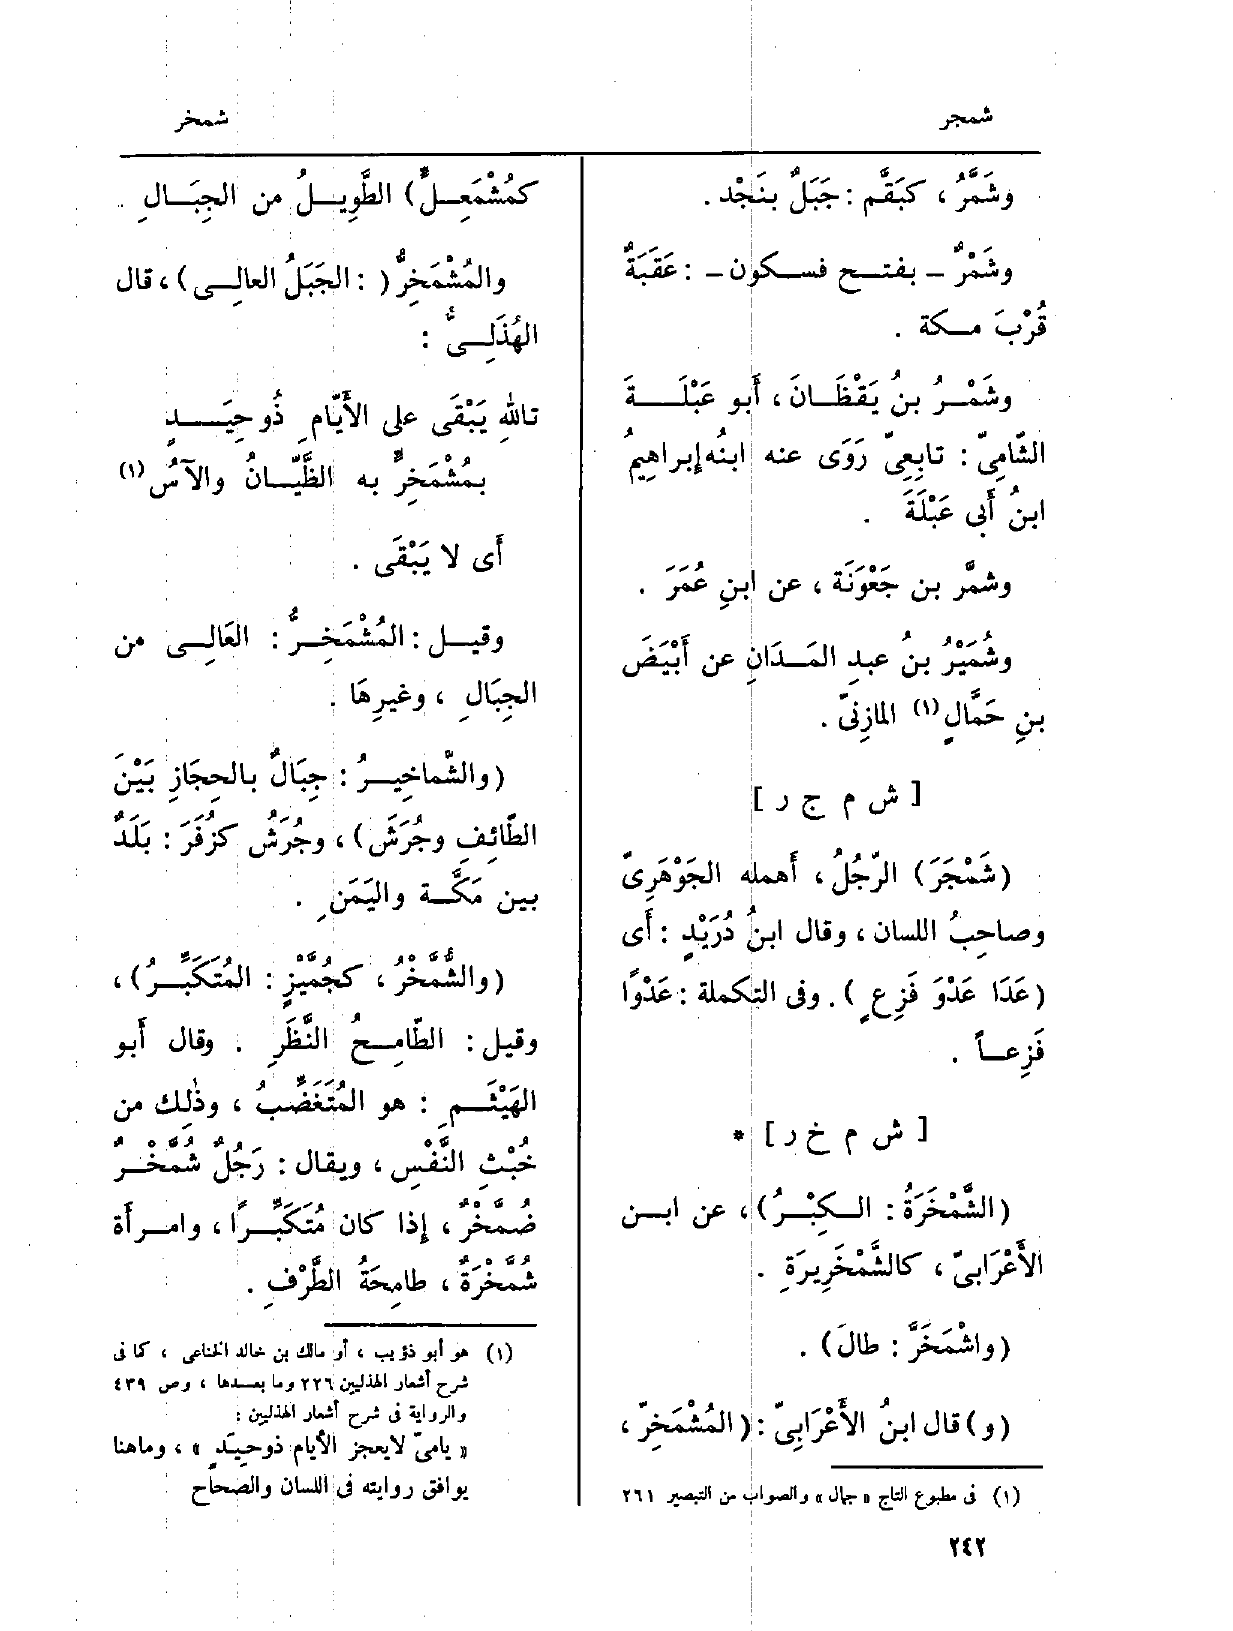 شمجر
شمخر
وشَمَّرُ ، كبَقَّم : جَبَلٌ بنَجْد .
وشَمْرٌ – بفتح فسكون – : عَقَبَةٌ
قُرْبَ مكة .
وشَمْرُ بنُ يَقْظَانَ ، أَبو عَبْلَةَ
الشّامِىّ : تابِعِىّ رَوَى عنه ابنُه إبراهيمُ
ابنُ أَبى عَبْلَةَ .
وشمَّر بن جَعْوَنَة ، عن ابنِ عُمَرَ .
وشُمَيْرُ بنُ عبدِ المَدَانِ عن أَبْيَضَ
بنِ حَمَّالٍ (١) المازِنىّ .
[ ش م ج ر ]
(شَمْجَرَ) الرّجُلُ ، أَهمله الجَوْهَرِىّ
وصاحِبُ اللسان ، وقال ابنُ دُرَيْدٍ : أَى
(عَدَا عَدْوَ فَزِعٍ ) . وفى التكملة : عَدْوًا
فَزِعاً .
[ ش م خ ر ] *
(الشَّمْخَرَةُ : الكِبْرُ) ، عن ابن
الأَعْرَابىّ ، كالشَّمْخَرِيرَةِ .
(واشْمَخَرَّ : طالَ) .
(و) قال ابنُ الأَعْرَابِىّ : (المُشْمَخِرّ ،
(١) فى مطبوع التاج « جمال » والصواب من التبصير ٢٦١
كمُشْمَعِلٍّ) الطَّوِيلُ من الجِبَالِ .
والمُشْمَخِرُّ ( : الجَبَلُ العالِى ) ، قال
الهُذَلِىُّ :
تاللهِ يَبْقَى على الأَيّامِ ذُو حِيَدٍ
بمُشْمَخِرٍّ به الظَّيّانُ والآسُ (١)
أَى لا يَبْقَى .
وقيل : المُشْمَخِرُّ : العَالِى من
الجِبَالِ ، وغيرِهَا .
(والشّماخِيرُ : جِبَالٌ بالحِجَازِ بَيْنَ
الطّائِفِ وجُرَشَ) ، وجُرَشُ كزُفَرَ : بَلَدٌ
بين مَكَّة واليَمَنِ .
(والشُّمَّخْرُ ، كجُمَّيْزٍ : المُتَكَبِّرُ) ،
وقيل : الطّامِحُ النَّظَرِ . وقال أَبو
الهَيْثَمِ : هو المُتَغَضِّبُ ، وذٰلِك من
خُبْثِ النَّفْسِ ، ويقال : رَجُلٌ شُمَّخْرٌ
ضُمَّخْرٌ ، إِذا كان مُتَكَبِّرًا ، وامرأَة
شُمَّخْرَةٌ ، طامِحَةُ الطَّرْفِ .
(١) هو أبو ذؤيب ، أو مالك بن خالد الخناعى ، كما فى
شرح أشعار الهذليين ٢٢٦ وما بعدها ، وص ٤٣٩
والرواية فى شرح أشعار الهذليين :
« يامىّ لايعجز الأيام ذوحِيَدٍ » ، وماهنا
يوافق روايته فى اللسان والصحاح
٢٤٢